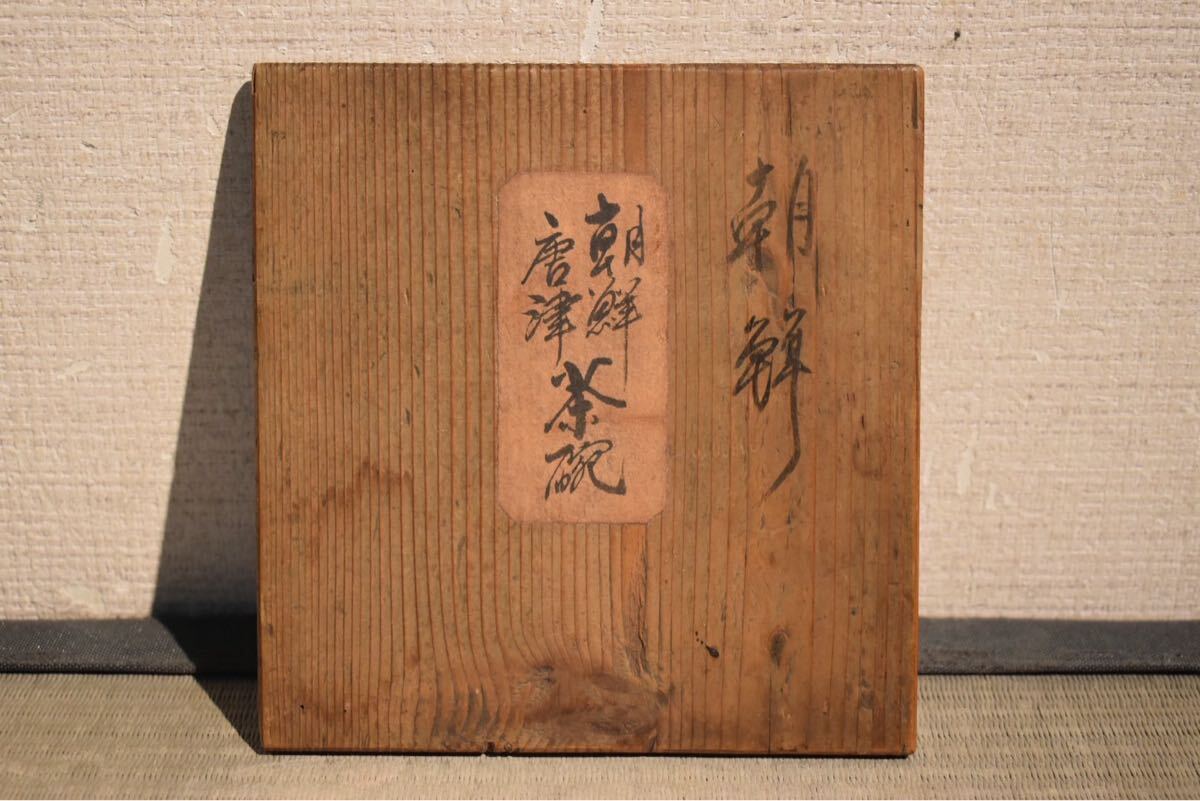 朝鮮
朝鮮
唐津
茶碗